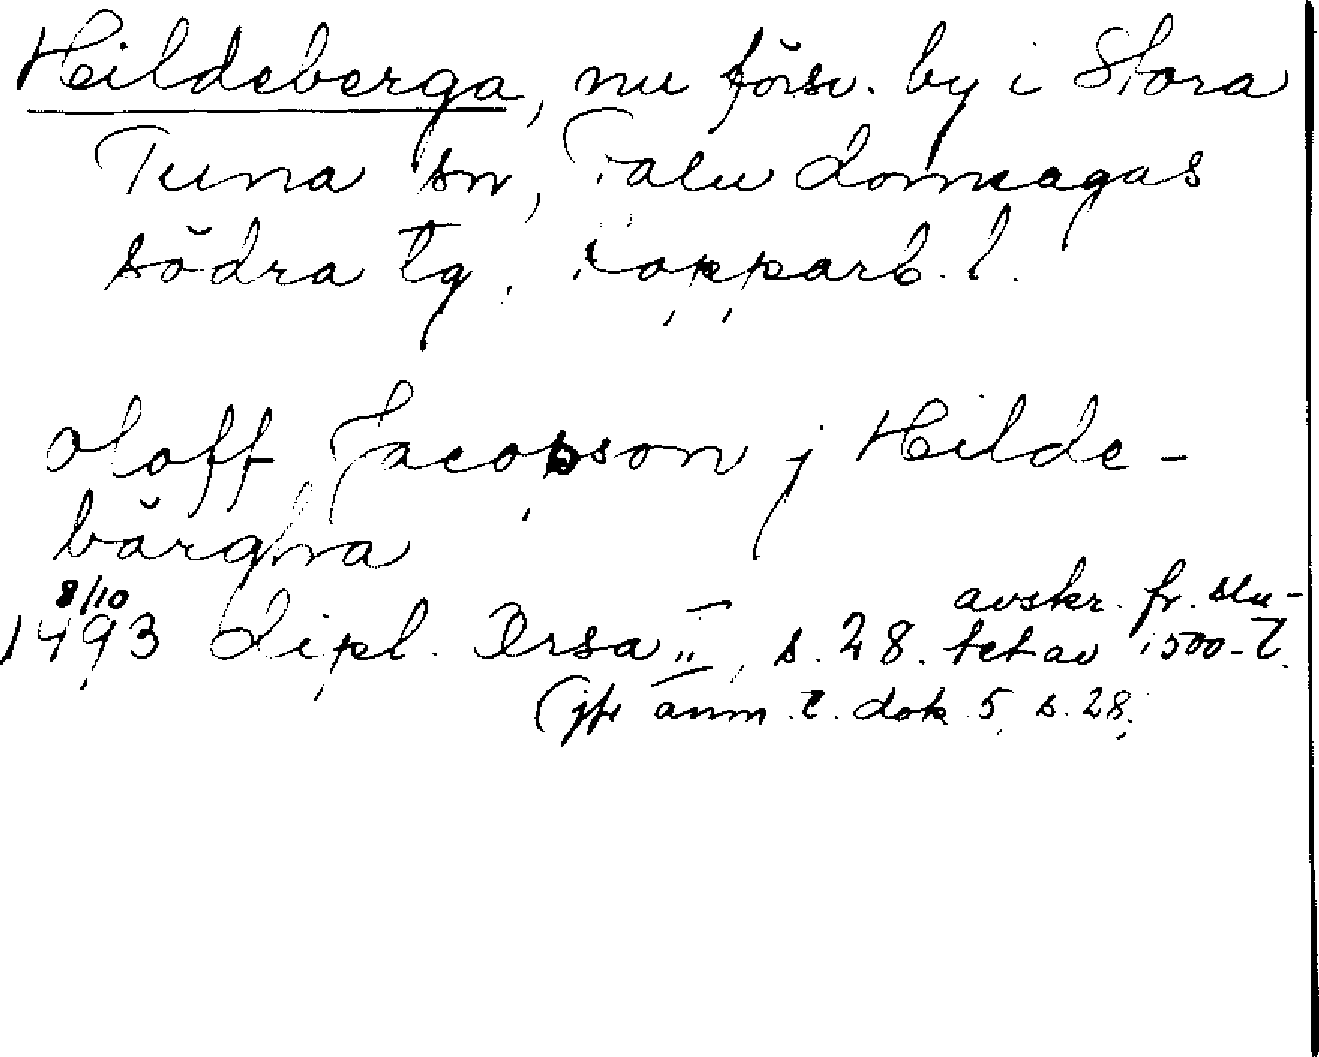 Hildeberga, nu försv. by i Stora
Tuna sn, Falu domsagas
södra tg, Kopparb. l.
Oloff Jacopson j Hilde-
bärghra
8/10
1493 Dipl. Orsa II, s. 28. avskr. fr. slu-
tet av 1500-t.
(jfr anm. t. dok 5, s. 28.